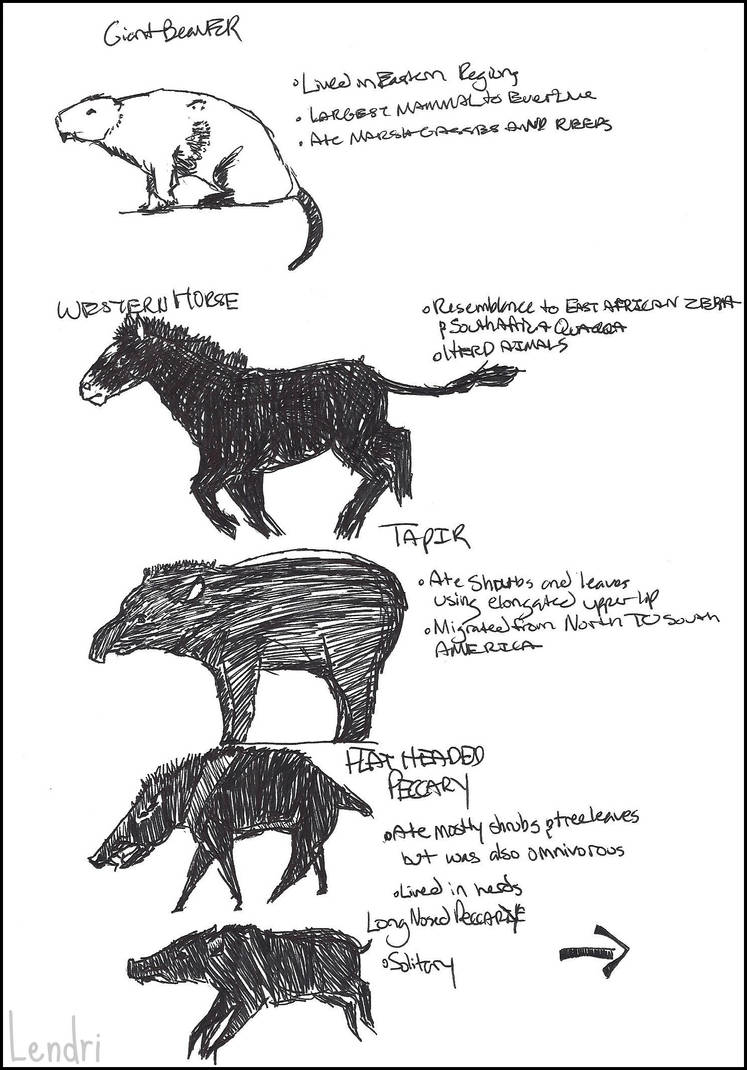 Giant BeavER
• Lived in Eastern Regions
• LARGEST MAMMAL to Ever Live
• Ate MARSH GASSES AND REEDS
WESTERN HORSE
• Resemblance to EAST AFRICAN ZEBRA
& South Africa QUAGGA
• HERD AIMALS
TAPIR
• Ate Shrubs and leaves
using elongated upper lip
• Migrated from North TO South
AMERICA
FLAT HEADED
PECCARY
• Ate mostly shrubs & tree leaves
but was also omnivorous
• Lived in herds
Long Nosed PECCARY
• Solitary
Lendri